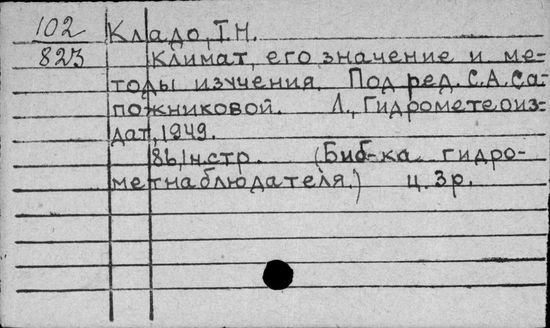 102 Кладо, Т.Н.
823 Климат, его значение и ме-
тоды изучения. Под ред. С.А. Са-
пожниковой. Л., Гидрометеоиз-
дат, 1949.
86, н.стр. (Биб-ка гидро-
метнаблюдателя.) ц. 3р.